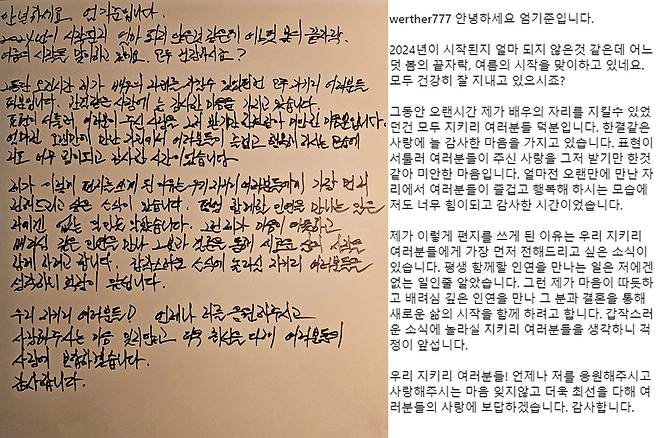 안녕하세요. 엄기준입니다.
2024년이 시작된지 얼마 되지 않은것 같은데 어느덧 봄의 끝자락,
여름의 시작을 맞이하고 있네요. 모두 건강하시죠?
그동안 오랜시간 제가 배우의 자리를 지킬수 있었던건 모두 지키리 여러분들
덕분입니다. 한결같은 사랑에 늘 감사한 마음을 가지고 있습니다.
표현이 서툴러 여러분들이 주신 사랑을 그저 받기만 한것같아 미안한 마음입니다.
얼마전 오랜만에 만난 자리에서 여러분들이 즐겁고 행복해 하시는 모습에
저도 너무 힘이되고 감사한 시간이었습니다.
제가 이렇게 편지를 쓰게 된 이유는 우리 지키리 여러분들에게 가장 먼저
전해드리고 싶은 소식이 있습니다. 평생 함께할 인연을 만나는 일은
저에겐 없는 일인줄 알았습니다. 그런 제가 마음이 따듯하고
배려심 깊은 인연을 만나 그 분과 결혼을 통해 새로운 삶의 시작을
함께 하려고 합니다. 갑작스러운 소식에 놀라실 지키리 여러분들을
생각하니 걱정이 앞섭니다.
우리 지키리 여러분들! 언제나 저를 응원해주시고
사랑해주시는 마음 잊지않고 더욱 최선을 다해 여러분들의
사랑에 보답하겠습니다.
감사합니다.
werther777 안녕하세요 엄기준입니다.
2024년이 시작된지 얼마 되지 않은것 같은데 어느
덧 봄의 끝자락, 여름의 시작을 맞이하고 있네요.
모두 건강히 잘 지내고 있으시죠?
그동안 오랜시간 제가 배우의 자리를 지킬수 있었
던건 모두 지키리 여러분들 덕분입니다. 한결같은
사랑에 늘 감사한 마음을 가지고 있습니다. 표현이
서툴러 여러분들이 주신 사랑을 그저 받기만 한것
같아 미안한 마음입니다. 얼마전 오랜만에 만난 자
리에서 여러분들이 즐겁고 행복해 하시는 모습에
저도 너무 힘이되고 감사한 시간이었습니다.
제가 이렇게 편지를 쓰게 된 이유는 우리 지키리
여러분들에게 가장 먼저 전해드리고 싶은 소식이
있습니다. 평생 함께할 인연을 만나는 일은 저에겐
없는 일인줄 알았습니다. 그런 제가 마음이 따듯하
고 배려심 깊은 인연을 만나 그 분과 결혼을 통해
새로운 삶의 시작을 함께 하려고 합니다. 갑작스러
운 소식에 놀라실 지키리 여러분들을 생각하니 걱
정이 앞섭니다.
우리 지키리 여러분들! 언제나 저를 응원해주시고
사랑해주시는 마음 잊지않고 더욱 최선을 다해 여
러분들의 사랑에 보답하겠습니다. 감사합니다.